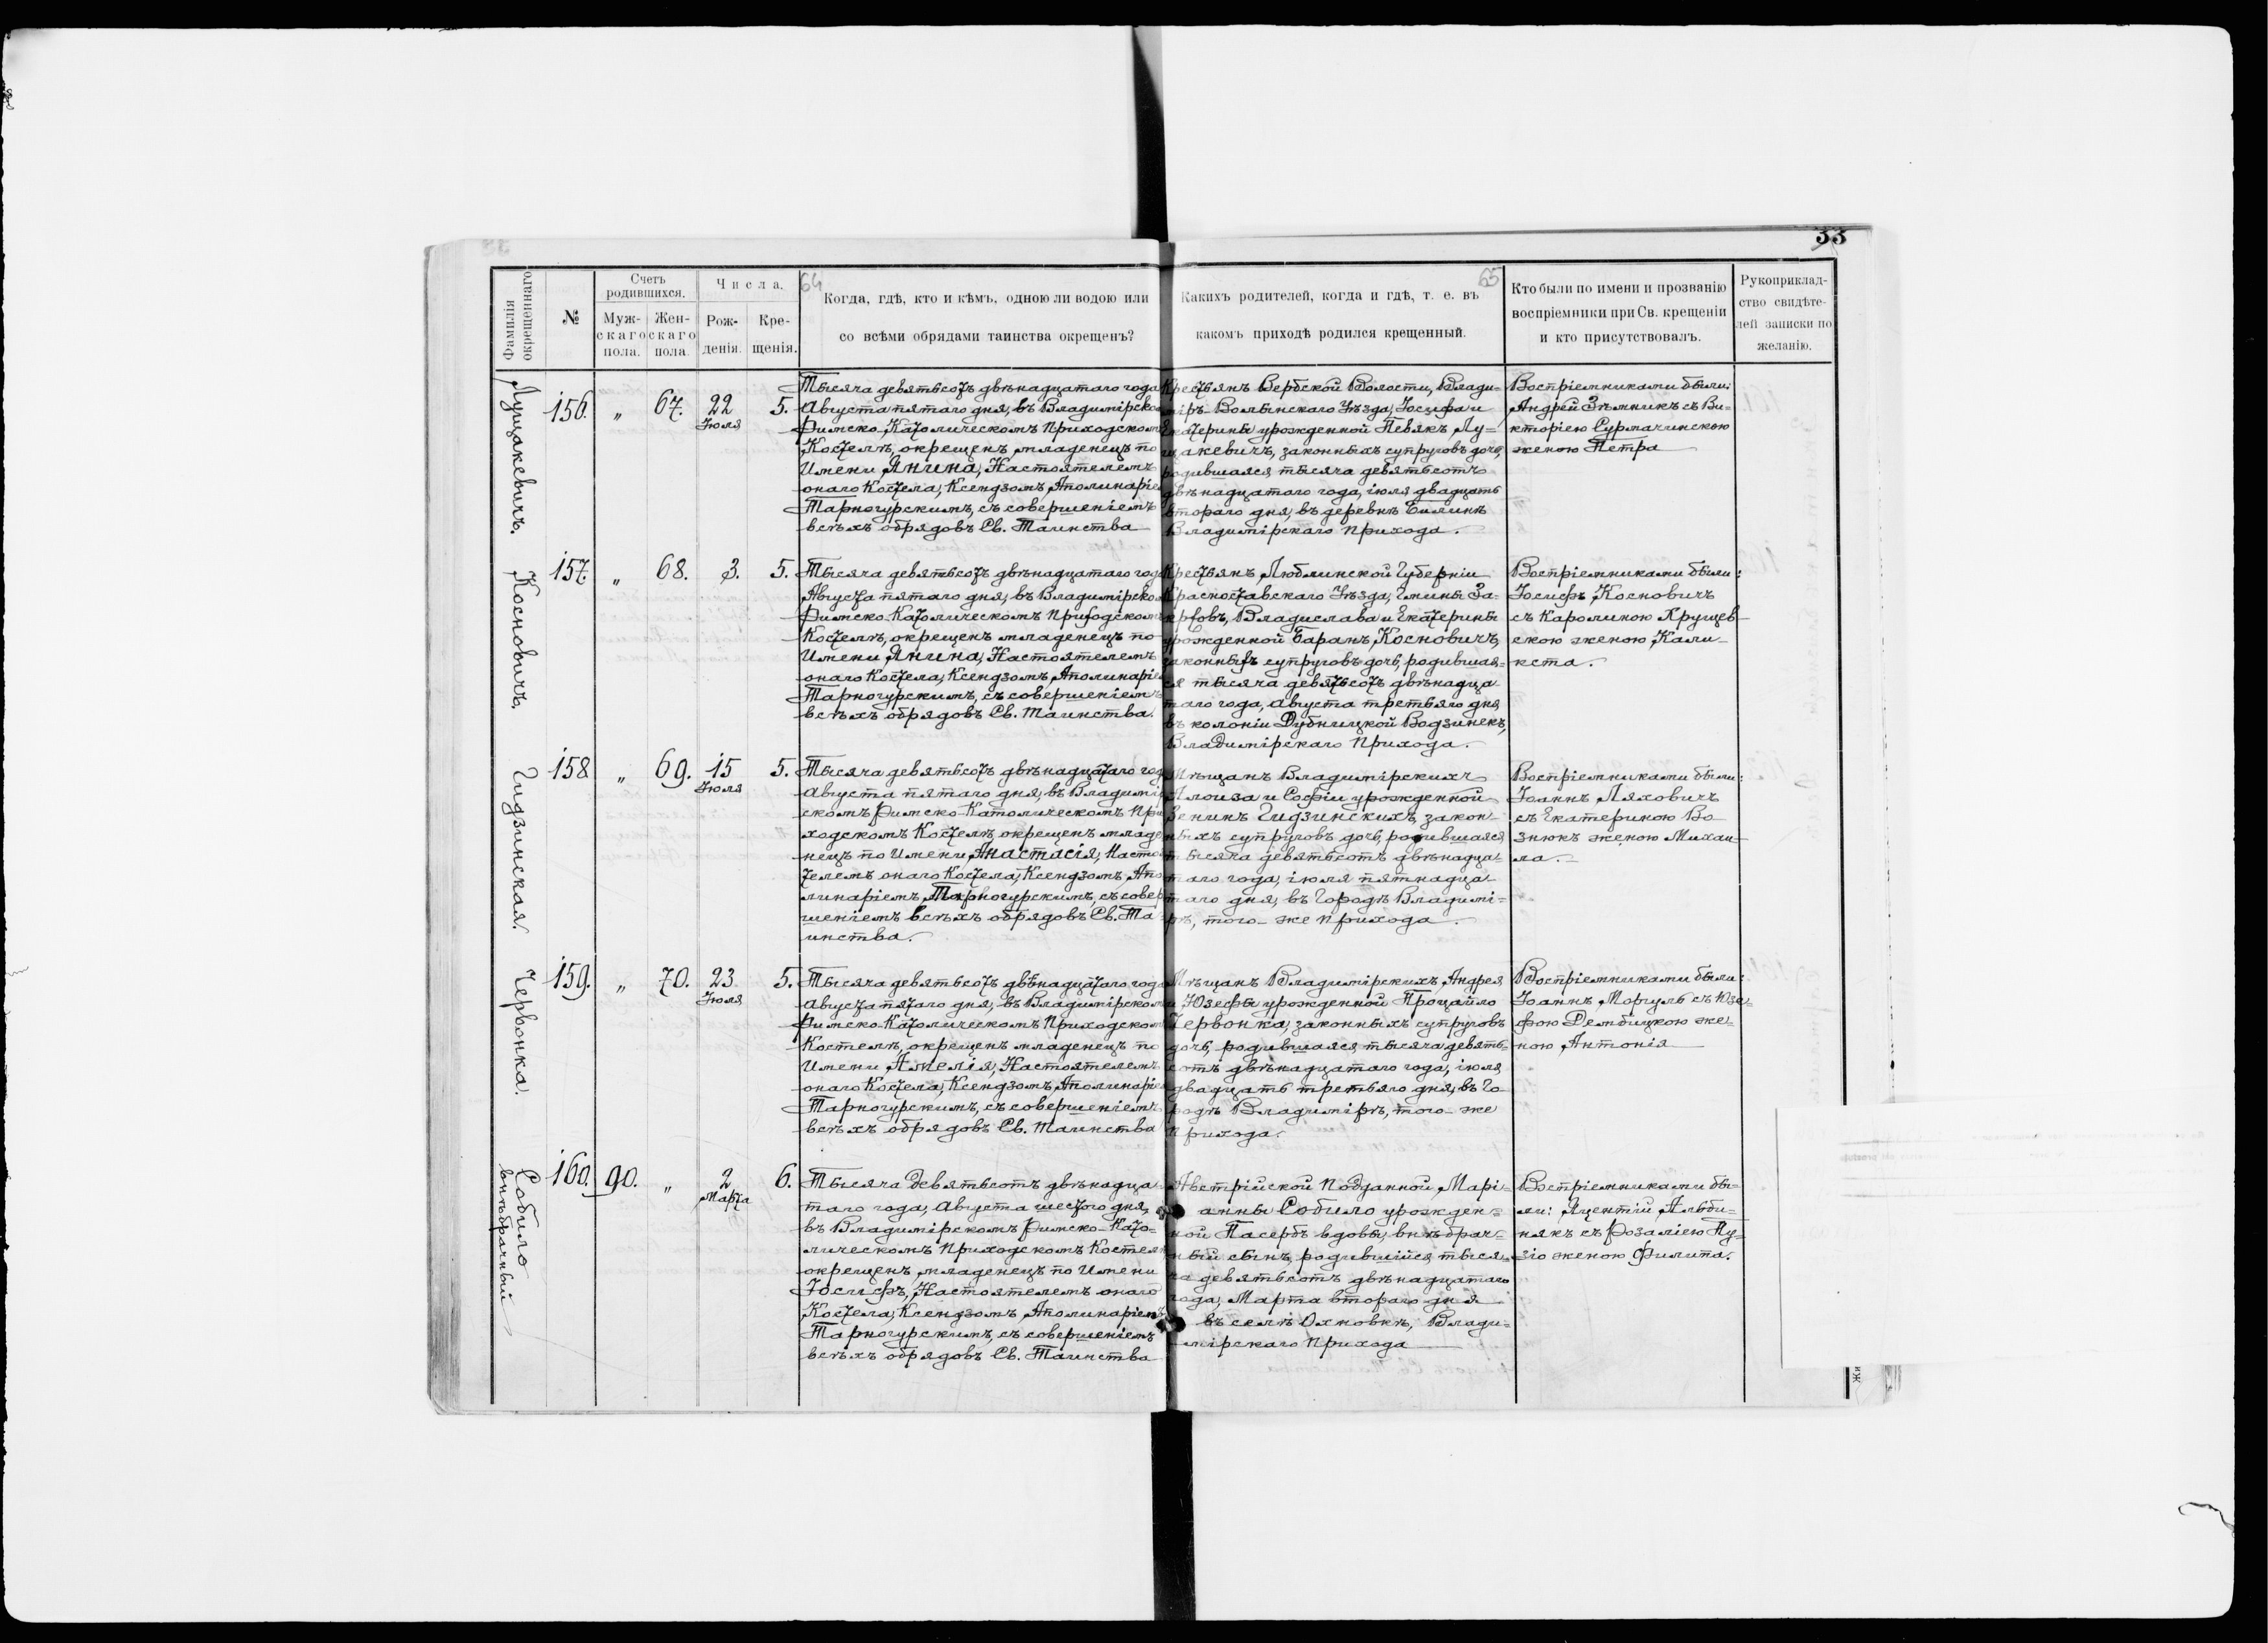 33
64
65
Фамилія
окрещеннаго
№
Счетъ
родившихся.
Муж-
скаго
пола.
Жен-
скаго
пола.
Числа.
Рож-
денія.
Кре-
щенія.
Когда, гдѣ, кто и кѣмъ, одною ли водою или
со всѣми обрядами таинства окрещенъ?
Какихъ родителей, когда и гдѣ, т. е. въ
какомъ приходѣ родился крещенный.
Кто были по имени и прозванію
воспріемники при Св. крещеніи
и кто присутствовалъ.
Рукоприклад-
ство свидѣте-
лей записки по
желанію.
Луцакевичъ.
156. „ 67. 22 5.
Іюля
Тысяча девятьсотъ двѣнадцатаго года
Августа пятаго дня, въ Владимірско
Римско-Католическомъ Приходскомъ
Костелѣ, окрещенъ младенецъ по
Имени Янина, Настоятелемъ
онаго Костела, Ксендзомъ Аполинаріе
Тарногурскимъ, съ совершеніемъ
всѣхъ обрядовъ Св. Таинства
Крестьянъ Вербской Волости, Влади-
міръ-Волынскаго Уѣзда, Іосифа и
Екатерины урожденной Певякъ, Лу-
цакевичъ, законныхъ супруговъ дочь,
родившаяся тысяча девятьсотъ
двѣнадцатаго года, іюля двадцать
втораго дня, въ деревнѣ Билинѣ
Владимірскаго Прихода.
Воспріемниками были:
Андрей Зѣмникъ съ Ви-
кторіею Сурмачинскою
женою Петра
Косновичъ.
157. „ 68. 3. 5.
Тысяча девятьсотъ двѣнадцатаго год
Августа пятаго дня, въ Владимірско
Римско-Католическомъ Приходскомъ
Костелѣ, окрещенъ младенецъ по
Имени Янина, Настоятелемъ
онаго Костела, Ксендзомъ Аполинаріе
Тарногурскимъ, съ совершеніемъ
всѣхъ обрядовъ Св. Таинства.
Крестьянъ Люблинской Губерніи
Красноставскаго Уѣзда, Гмины За-
кртовъ, Владислава и Екатерины
урожденной Баранъ, Косновичъ,
законныхъ супруговъ дочь, родившая-
ся тысяча девятьсотъ двѣнадца
таго года, Августа третьяго дня,
въ колоніи Дубницкой Водзинекъ,
Владимірскаго Прихода.
Воспріемниками были:
Іосифъ Косновичъ
съ Каролиною Хрущев-
скою женою Кали-
кста.
Гидзинская.
158 „ 69. 15 5.
Іюля
Тысяча девятьсотъ двѣнадцатаго год
Августа пятаго дня, въ Владимір
скомъ Римско-Католическомъ При
ходскомъ Костелѣ, окрещенъ младе
нецъ по Имени Анастасія, Насто
телемъ онаго Костела, Ксендзомъ Апо
линаріемъ Тарногурскимъ, съ совер
шеніемъ всѣхъ обрядовъ Св. Та-
инства.
Мѣщанъ Владимірскихъ
Алоиза и Софіи урожденной
Зенинъ Гидзинскихъ, закон-
ныхъ супруговъ дочь, родившаяся
тысяча девятьсотъ двѣнадца-
таго года, іюля пятнадца
таго дня, въ Городѣ Владимі-
рѣ, того-же Прихода.
Воспріемниками были:
Іоаннъ Ляховичъ
съ Екатериною Во
знюкъ женою Михаи-
ла.
Червонка.
159. „ 70. 23 5.
Іюля
Тысяча девятьсотъ двѣнадцатаго года
Августа пятаго дня, въ Владимірском
Римско-Католическомъ Приходском
Костелѣ, окрещенъ младенецъ по
Имени Амелія, Настоятелемъ
онаго Костела, Ксендзомъ Аполинаріе
Тарногурскимъ, съ совершеніемъ
всѣхъ обрядовъ Св. Таинства
Мѣщанъ Владимірскихъ, Андрея
и Юзефы урожденной Процайло
Червонка, законныхъ супруговъ
дочь, родившаяся тысяча девять-
сотъ двѣнадцатаго года, іюля
двадцать третьяго дня, въ Го
родѣ Владимірѣ, того-же
Прихода.
Воспріемниками были:
Іоаннъ Моргуль съ Юзе-
фою Дембицкою же-
ною Антонія
Собило
внѣбрачный
160. 90. „ 2 6.
Марта
Тысяча девятьсотъ двѣнадца-
таго года, Августа шестого дня,
въ Владимірскомъ Римско-Като-
лическомъ Приходскомъ Костелѣ
окрещенъ младенецъ по Имени
Іосифъ, Настоятелемъ онаго
Костела, Ксендзомъ Аполинаріемъ
Тарногурскимъ, съ совершеніемъ
всѣхъ обрядовъ Св. Таинства
Австрійской подданной, Марі-
анны Собило урожден-
ной Пасербъ вдовы, внѣбрач-
ный сынъ, родившійся тыся-
ча девятьсотъ двѣнадцатаго
года, Марта втораго дня
въ селѣ Охновкѣ, Влади-
мірскаго Прихода
Воспріемниками бы-
ли: Яцентій Альби-
някъ съ Розаліею Пу-
зіо женою Филипа.